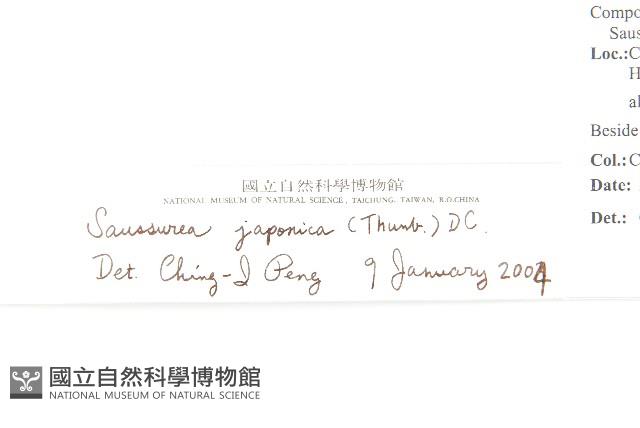 國立自然科學博物館
NATIONAL MUSEUM OF NATURAL SCIENCE, TAICHUNG, TAIWAN, R.O.CHINA
Saussurea japonica (Thunb.) DC.
Det. Ching-I Peng 9 January 2004
Compo
Saus
Loc.:C
H
al
Beside
Col.:C
Date:
Det.:
國立自然科學博物館
NATIONAL MUSEUM OF NATURAL SCIENCE